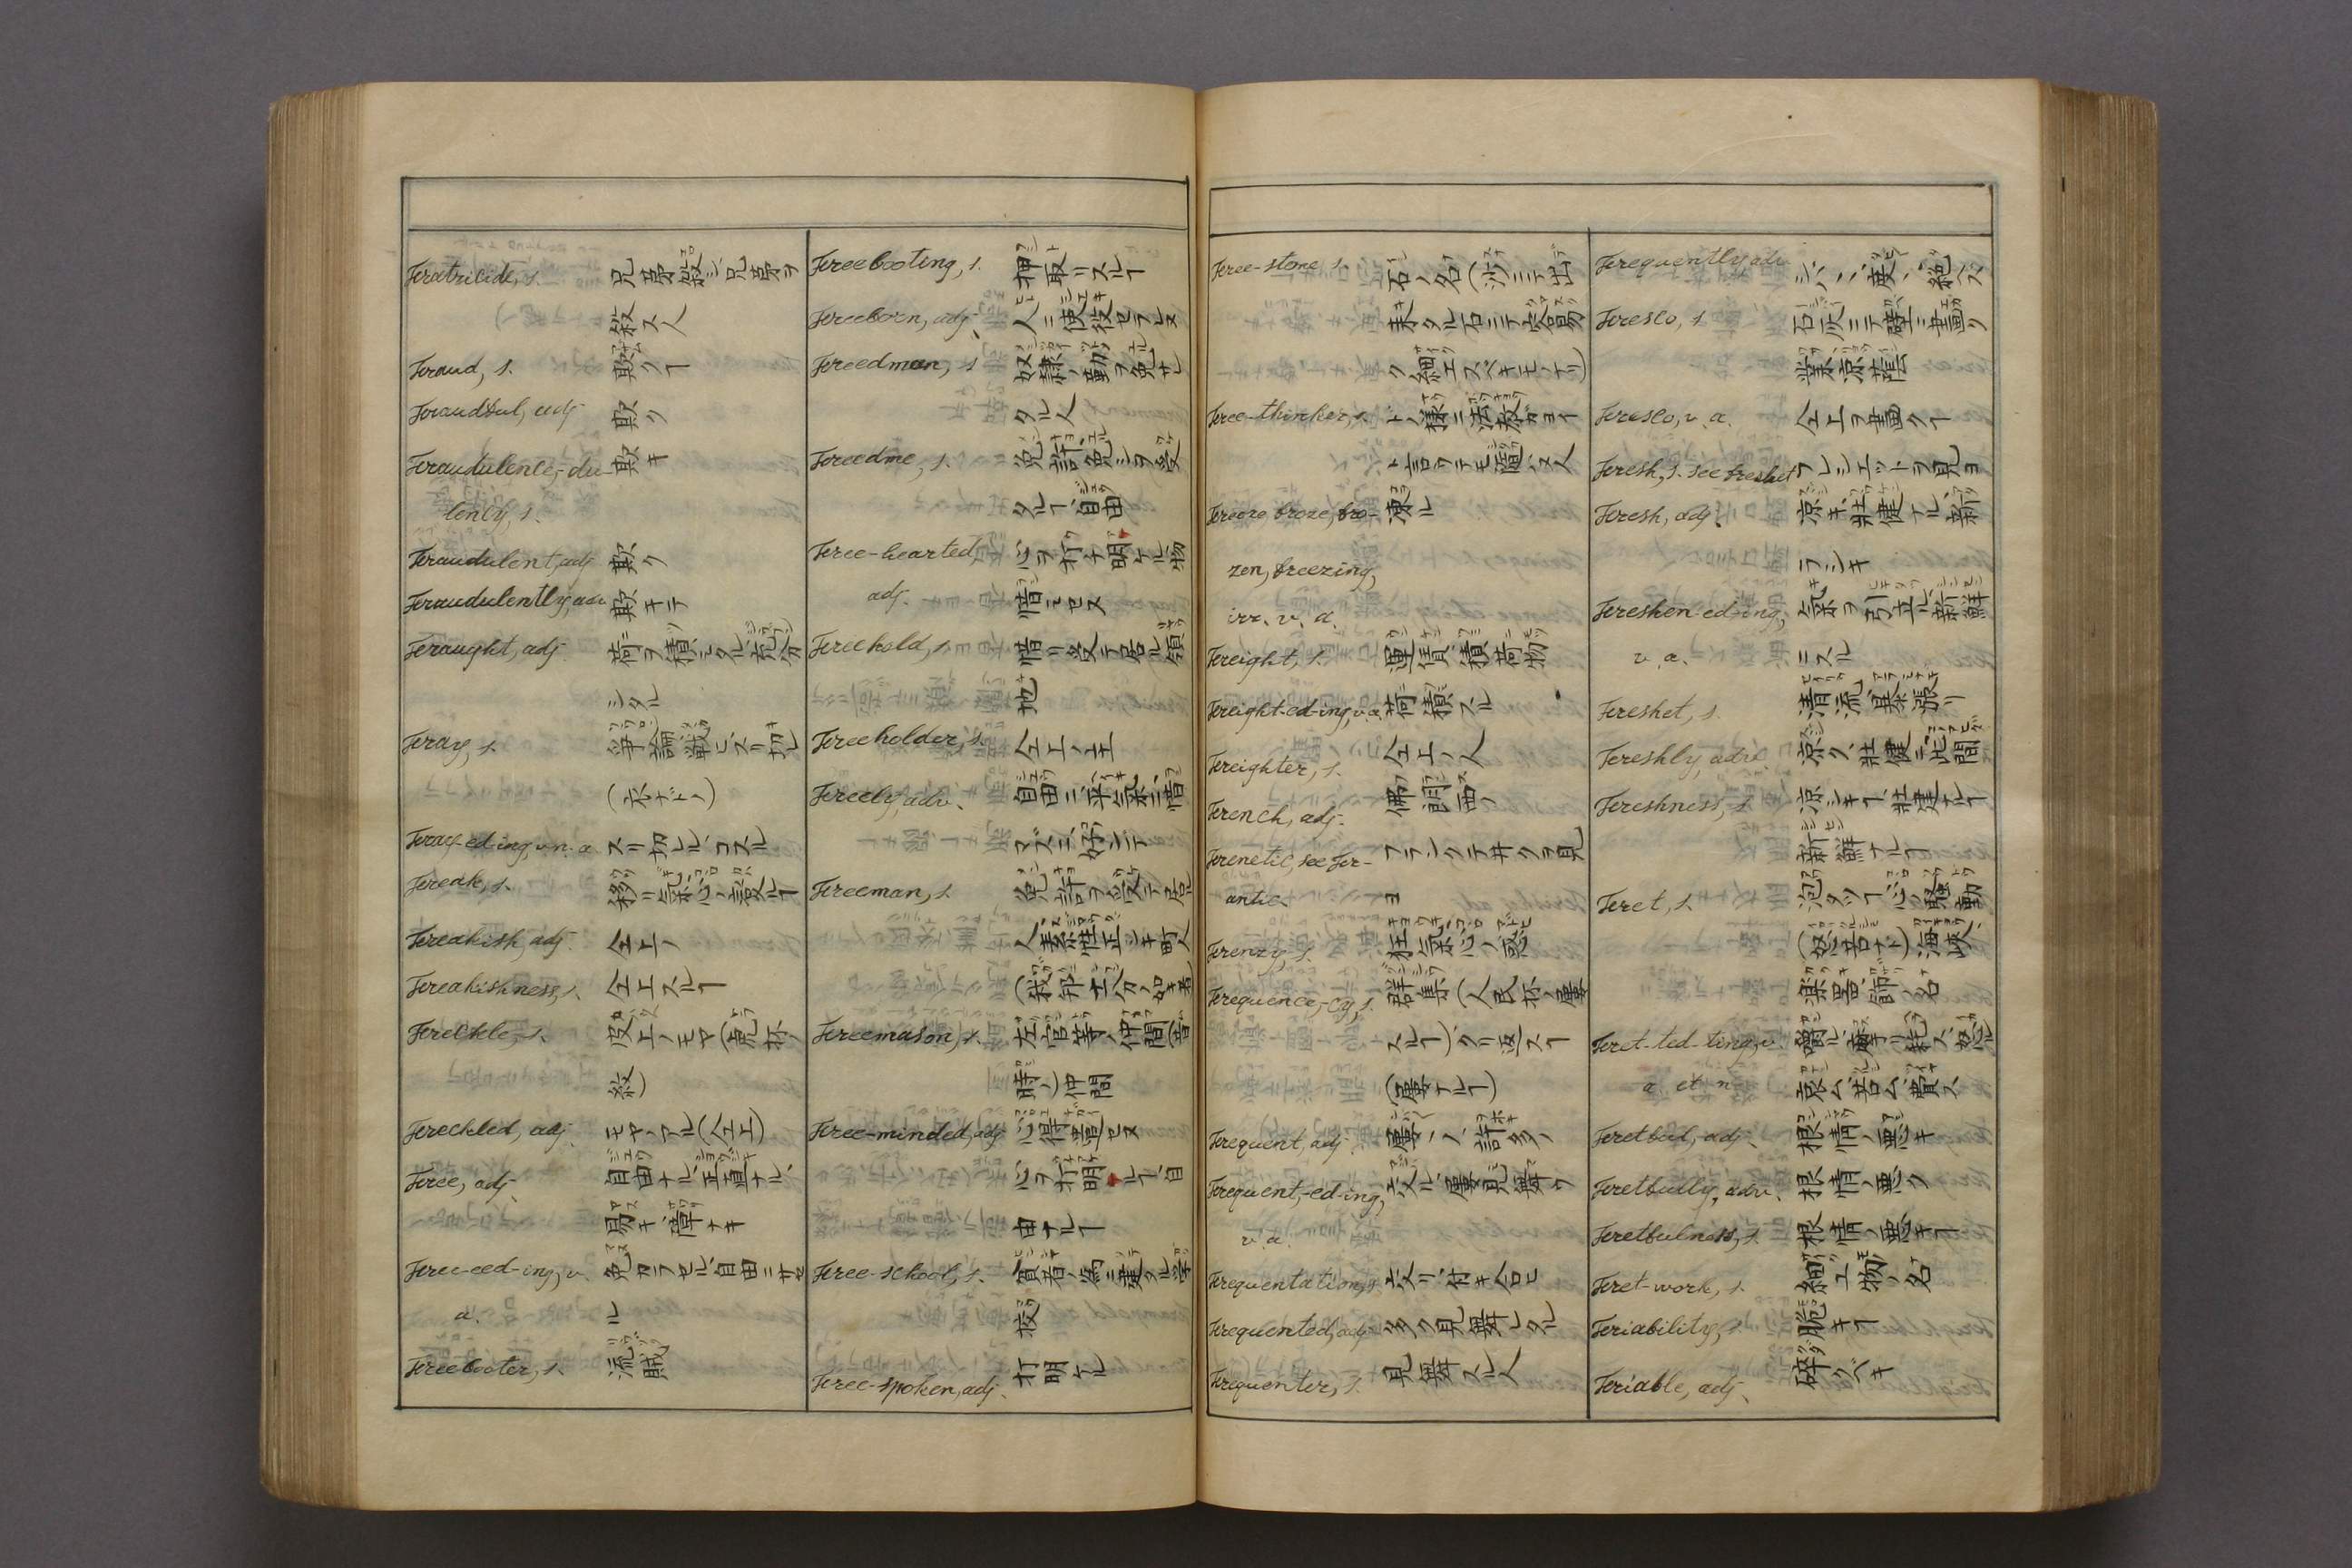 Fratricide, s. 兄弟殺シ兄弟ヲ
殺ス人
Fraud, s. 欺クヿ
Fraudful, adj. 欺ク
Fraudulence, -du- 欺キ
lency, s.
Fraudulent, adj. 欺ク
Fraudulently, adv. 欺キテ
Fraught, adj. 荷ヲ積ミタル、充分
シタル
Fray, s. 争論、戦ヒ、スリ切レ
(衣ナドノ)
Fray-ed-ing, v. n. a. スリ切レル、コスル
Freak, s. 移リ気、心ノ散ルヿ
Freakish, adj. 仝上ノ
Freakishness, s. 仝上スルヿ
Freckle, s. 皮上ノモヤ(鹿杯ノ
紋)
Freckled, adj. モヤノアル(仝上)
Free, adj. 自由ナル、正直ナル、
易キ、障ナキ
Free-eed-ing, v. 免カラセル、自由ニサセ
a. ル
Freebooter, s. 流賊
Freebooting, s. 押取リスルヿ
Freeborn, adj. 人ニ使役セラレヌ
Freedman, s. 奴隷ノ勤ヲ免サレ
タル人
Freedme, s. 免許、免シヲ受
タルヿ、自由
Free-hearted, 心ヲ打チ明ケル、物
adj. 惜ミセヌ
Freehold, s. 借リ受テ居ル領
地
Freeholder, s. 仝上ノ主
Freely, adv. 自由ニ、平気ニ、惜
マズニ、好ンデ
Freeman, s. 免許ヲ受テ居ル
人、素性正シキ町人
Freemason, s. 左官等ノ仲間(昔
時ノ)仲間
Free-minded, adj. 心得違セヌ
心ヲ打明ケルヿ、自
由ナルヿ
Free-school, s. 貧者ノ為ニ建タル学
校
Free-spoken, adj. 打明ケル
Free-stone, s. 石ノ名
来タル石ニテ容易
ク細工スベキモノナリ)
Free-thinker, s.
ト言ウテモ随ハヌ人
Freeze, froze, fro- 凍ル
zen, freezing,
irr. v. a.
Freight, s. 運賃、積荷物
Freight-ed-ing, v. a. 荷積スル
Freighter, s. 仝上ノ人
French, adj. 佛朗西ノ
Frenetic, see Fr- フランクテ井クヲ見
antic. ヨ
Frenzy, s. 狂気、心ノ惑ヒ
Frequence, -cy, s. 群集(人民杯ノ屢
スルヿ)、クリ返スヿ
(屢ナルヿ)
Frequent, adj. 屢々ノ、許多ノ
Frequent, -ed-ing, 交ル、屢見舞ウ
v. a.
Frequentation, s. 交リ、付キ合ヒ
Frequented, adj. 多ク見舞レタル
Frequenter, s. 見舞スル人
Frequently, adv. シバシバ、度々、絶ヘス
Fresco, s. 石灰ニテ壁ニ画ク
業、涼蔭
Fresco, v. a. 仝上ヲ画クヿ
Fresh, s. see freshet フレシエットヲ見ヨ
Fresh, adj. 涼キ、壮健ナル、新
ラシキ
Freshen-ed-ing, 気ヲ引立ル、新鮮
v. a. ニスル
Freshet, s. 清流、暴漲リ
Freshly, adv. 涼ク、壮健ニ、此間
Freshness, s. 涼シキヿ、壮健ナルヿ
新鮮ナルヿ
Fret, s. 泡ダツヿ、心ノ騒動
(怒苦ナド)、海峡、
楽器ノ飾ノ名
Fret-ted-ting, v. 磨リ耗ス、怒ル
a. et n. 哀ム、苦ム、費ス
Fretful, adj. 根情ノ悪キ
Fretfully, adv. 根情ノ悪ク
Fretfulness, s. 根情ノ悪キヿ
Fret-work, s. 細工物ノ名
Friability, s. 脆キヿ
Friable, adj. 砕クベキ